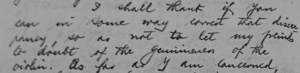 I shall thank if you
can in some way correct that discre
pancy, so as not to let my friends
to doubt of the genuineness of the
violin. As far as I am concerned,